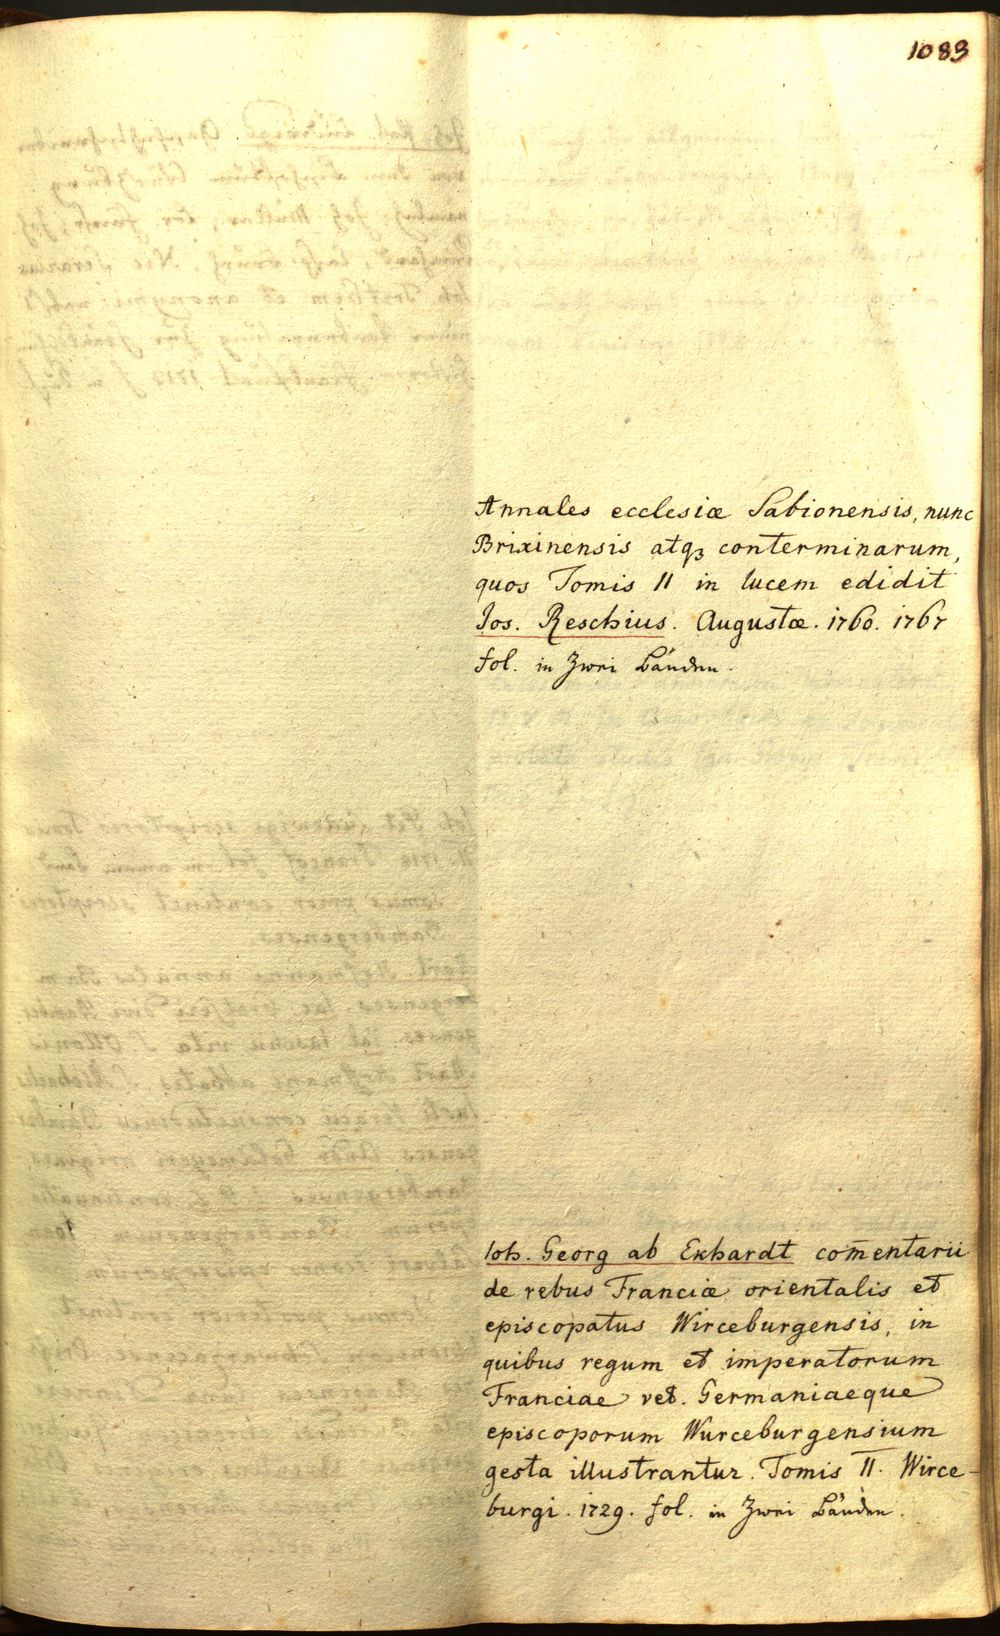 1089
Annales ecclesiæ Sabionensis, nunc
Brixinensis atqꝫ conterminarum,
quos Tomis II in lucem edidit
Jos. Reschius. Augustæ. 1760. 1767
fol. in Zwei Bänden.
Ioh. Georg ab Ekhardt com̄entarii
de rebus Franciæ orientalis et
episcopatus Wirceburgensis, in
quibus regum et imperatorum
Franciae vet. Germaniaeque
episcoporum Wurceburgensium
gesta illustrantur. Tomis II. Wirce-
burgi. 1729. fol. in Zwei Bänden.